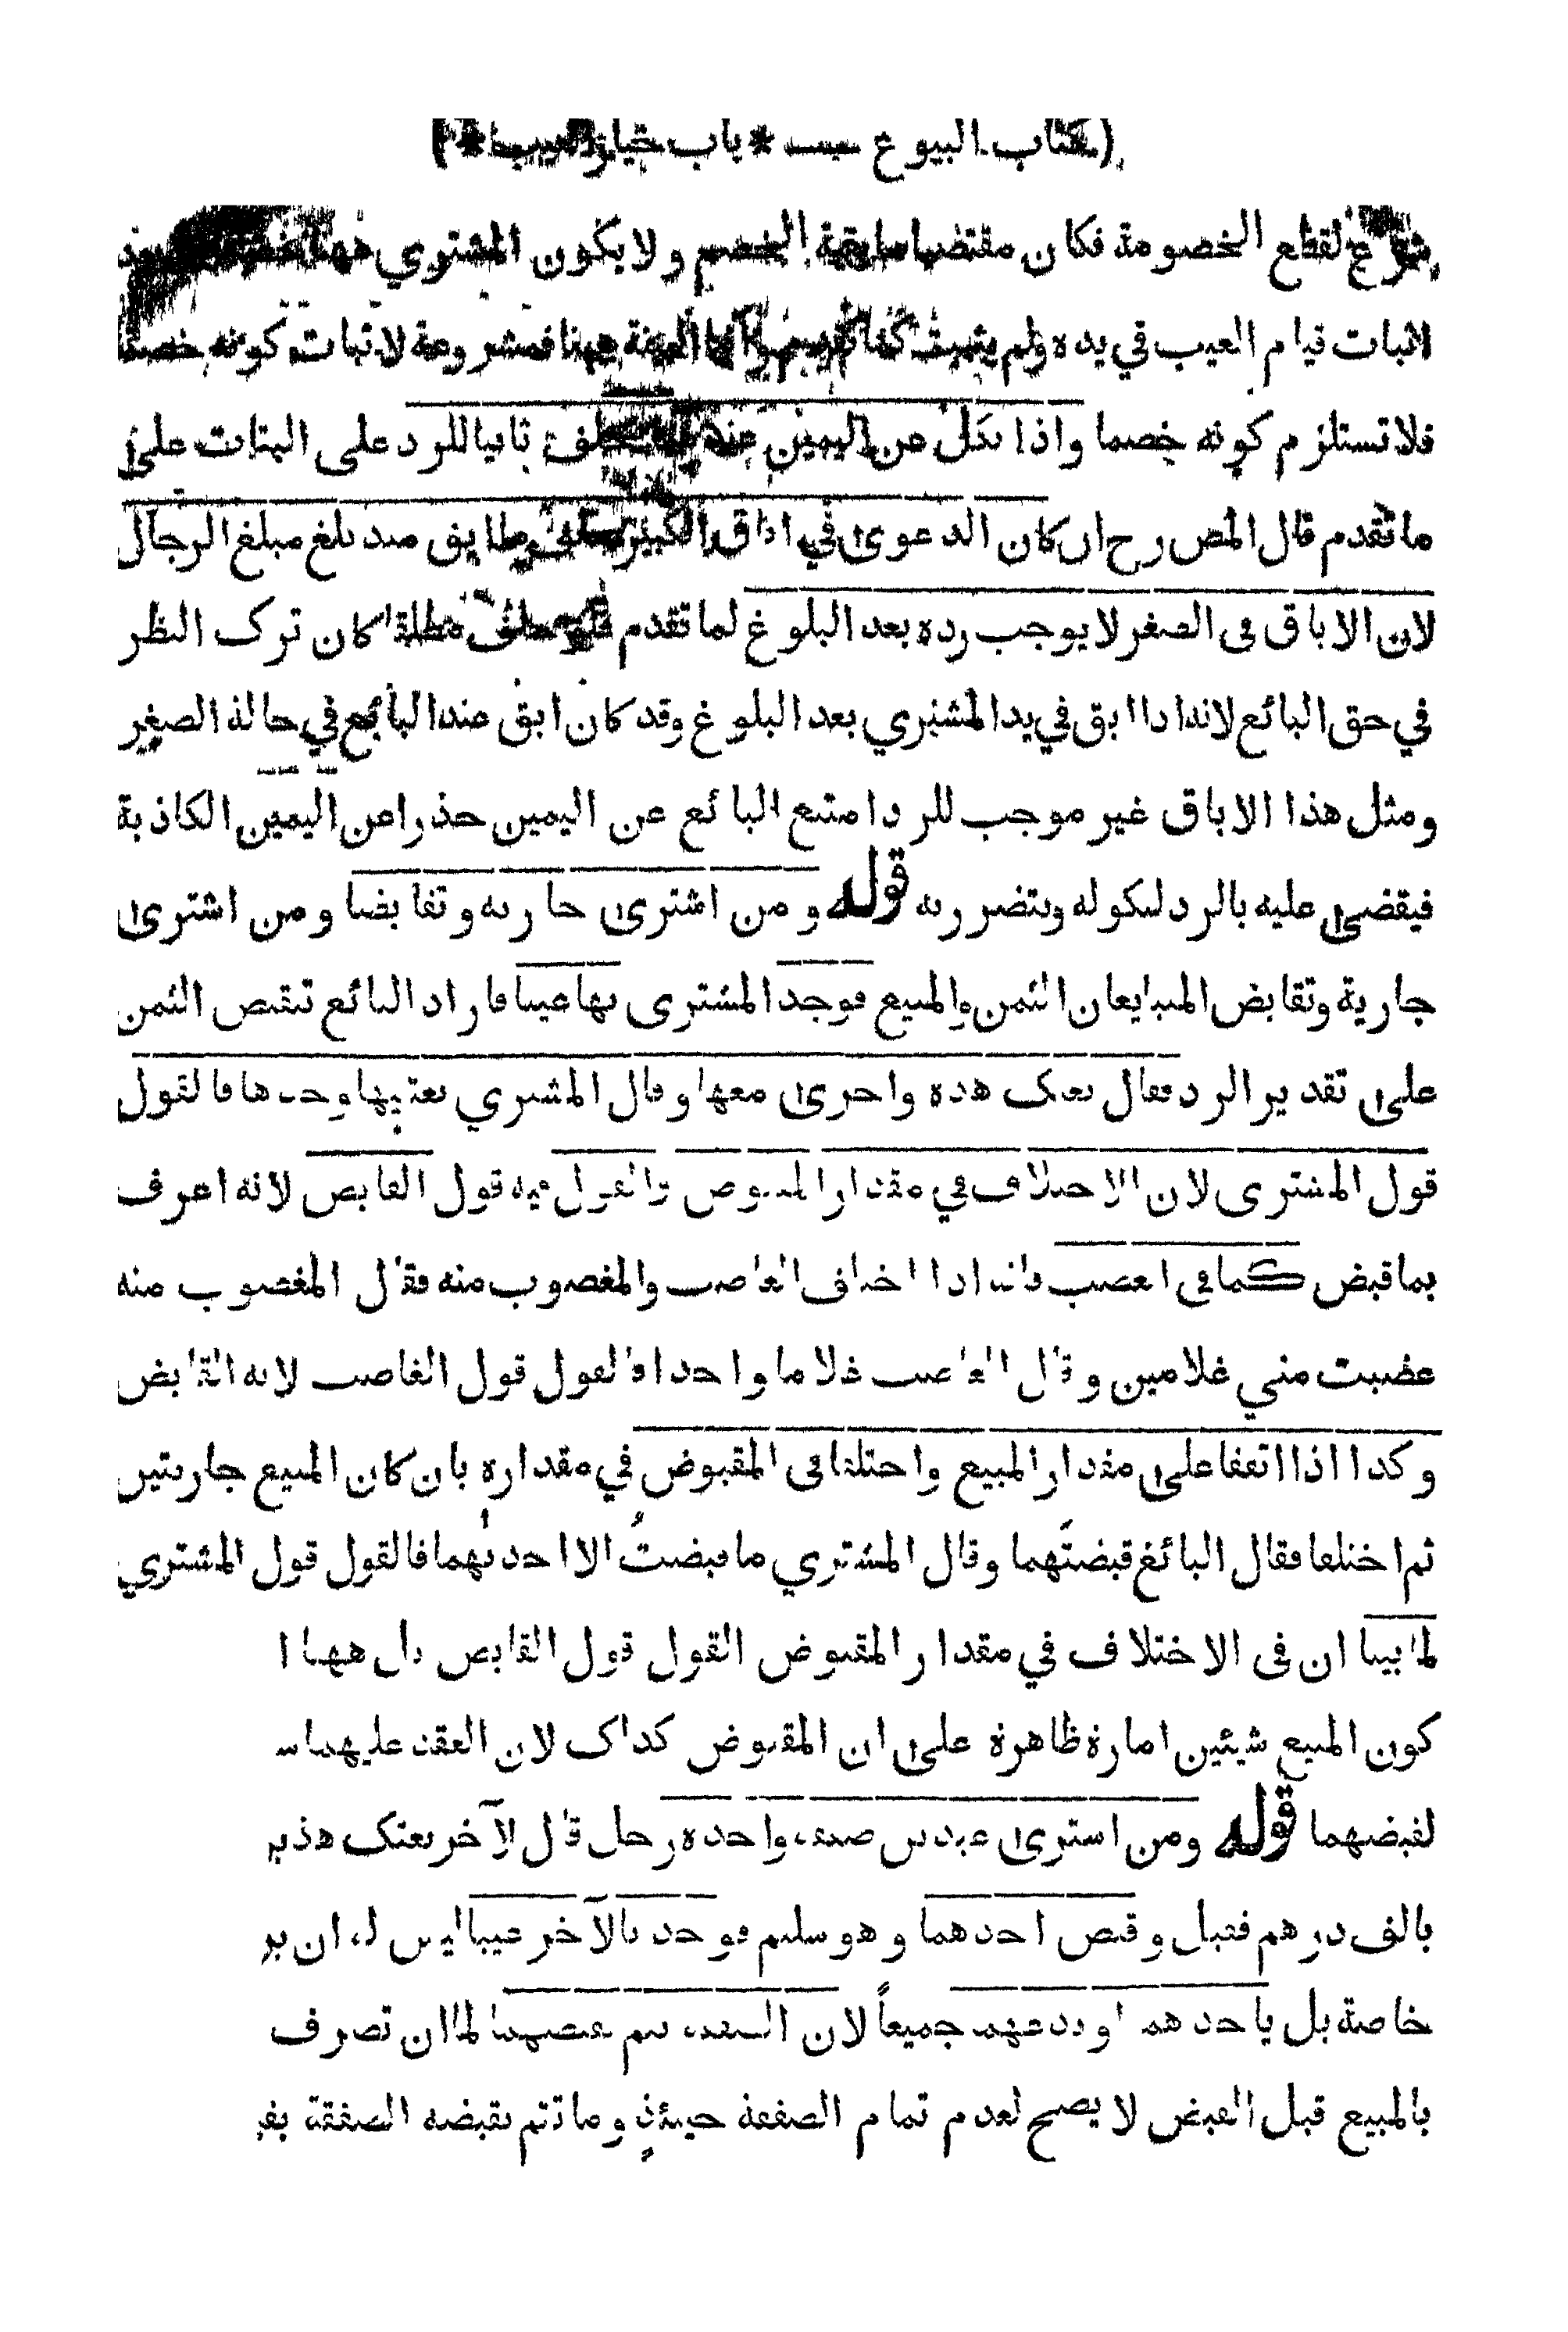 (كتاب البيوع * باب خيار العيب *)
شرع لقطع الخصومة فكان مقتضيا سابقية الخصم ولا يكون المشتري ههنا
لاثبات قيام العيب في يده ولم يثبت كما تقدم واما البينة ههنا فمشروعة لاثبات كونه خصما
فلا تستلزم كونه خصما واذا نكل عن اليمين عنده يحلف ثانيا للرد على البتات على
ما تقدم قال المص رح ان كان الدعوى في اباق الكبير يحلف ما ابق منذ بلغ مبلغ الرجال
لان الاباق في الصغر لا يوجب رده بعد البلوغ لما تقدم فلو حلف مطلقا كان ترك النظر
في حق البائع لانه اذا ابق في يد المشتري بعد البلوغ وقد كان ابق عند البائع في حالة الصغر
ومثل هذا الاباق غير موجب للرد امتنع البائع عن اليمين حذرا عن اليمين الكاذبة
فيقضى عليه بالرد لنكوله ويتضرر به قوله ومن اشترى جارية وتقابضا ومن اشترى
جارية وتقابض المتبايعان الثمن والمبيع فوجد المشترى بها عيبا فاراد البائع تنقيص الثمن
على تقدير الرد فقال بعتك هذه واخرى معها وقال المشتري بعتنيها وحدها فالقول
قول المشترى لان الاختلاف في مقدار المقبوض والقول فيه قول القابض لانه اعرف
بما قبض كما في الغصب فانه اذا اختلف الغاصب والمغصوب منه فقال المغصوب منه
غصبت مني غلامين وقال الغاصب غلاما واحدا فالقول قول الغاصب لانه القابض
وكذا اذا اتفقا على مقدار المبيع واختلفا في المقبوض في مقداره بان كان المبيع جاريتين
ثم اختلفا فقال البائع قبضتَهما وقال المشتري ما قبضتُ الا احدىٰهما فالقول قول المشتري
لما بينا ان في الاختلاف في مقدار المقبوض القول قول القابض بل ههنا ا
كون المبيع شيئين امارة ظاهرة على ان المقبوض كذلك لان العقد عليهما سـ
لقبضهما قوله ومن اشترى عبدين صفقة واحدة رجل قال لآخر بعتك هذيـ
بالف درهم فقبل وقبض احدهما وهو سليم فوجد بالآخر عيبا ليس له ان ير
خاصة بل ياخذهما او يدعهما جميعاً لان الصفقة تتم بقبضهما لما ان تصرف
بالمبيع قبل القبض لا يصح لعدم تمام الصفقة حينئذٍ وما تتم بقبضه الصفقة بقـ